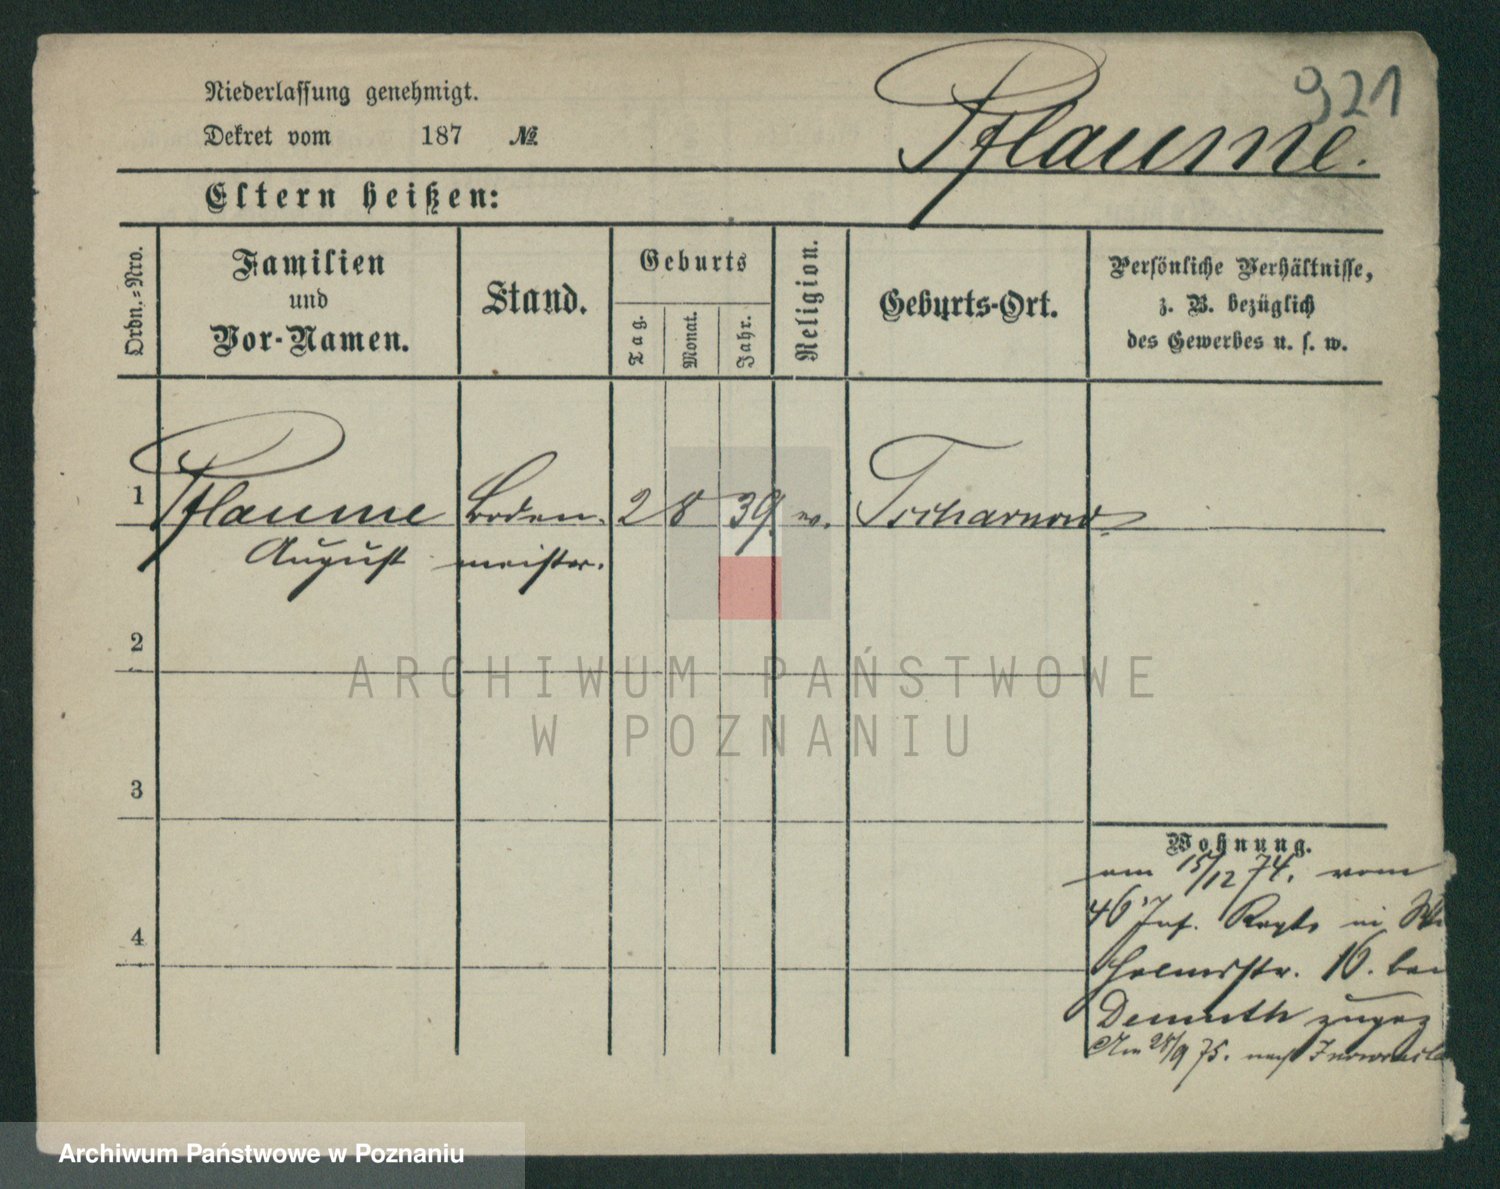 921
Niederlassung genehmigt.
Dekret vom 187 №
Pflaume.
Eltern heißen:
Ordn.=Nro.
Familien
und
Vor-Namen.
Stand.
Geburts
Tag.
Monat.
Jahr.
Religion.
Geburts-Ort.
Persönliche Verhältnisse,
z. B. bezüglich
des Gewerbes u. s. w.
1 Pflaume Boden- 2 8 39. ev. Tscharnow
August meister.
2
3
4
Wohnung.
am 15/12 74. vom
46 Inf. Regts in
helmstr. 16. bei
Demuth zugez
Am 28/9 75. nach Inowracla
ARCHIWUM PAŃSTWOWE
W POZNANIU
Archiwum Państwowe w Poznaniu